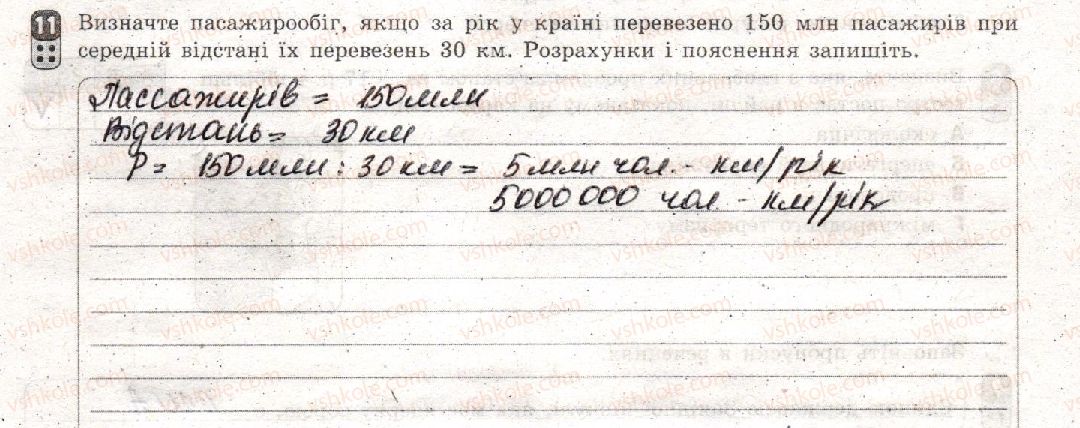 11 Визначте пасажирообіг, якщо за рік у країні перевезено 150 млн пасажирів при
середній відстані їх перевезень 30 км. Розрахунки і пояснення запишіть.
Пассажирів = 150 млн
Відстань = 30 км
P = 150 млн : 30 км = 5 млн чол - км/рік
5000000 чол - км/рік